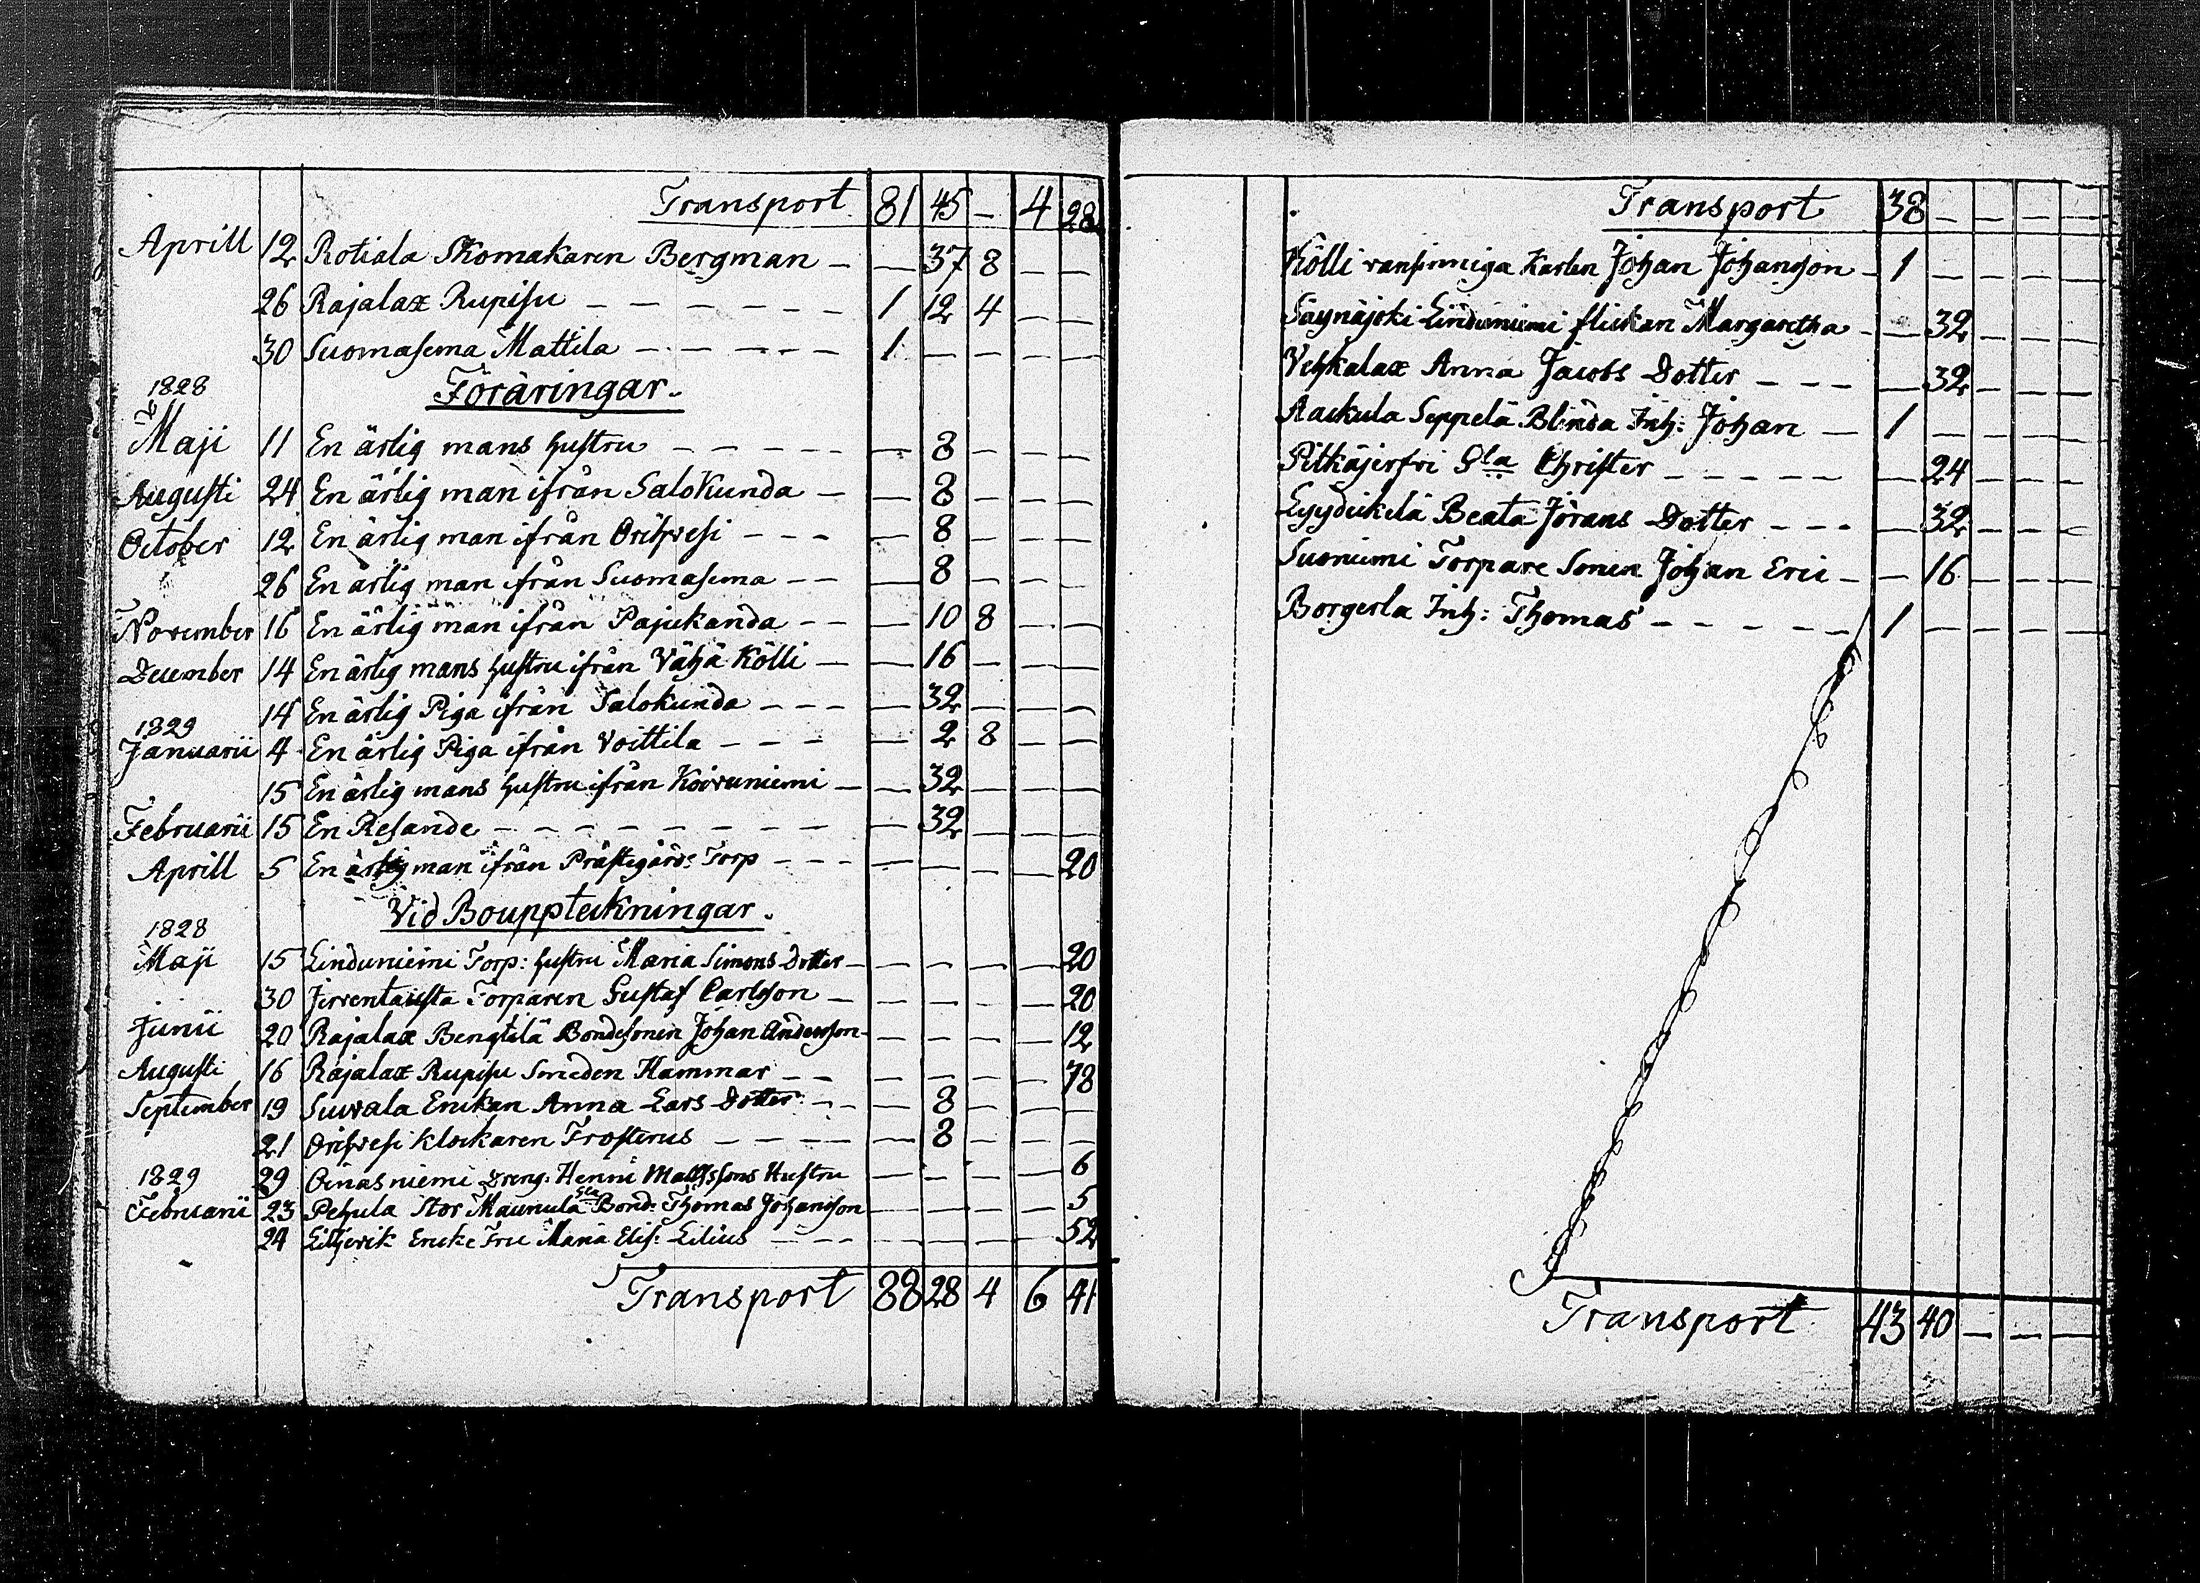 Transport 81 45 — 4 28
Aprill 12 Rotiala Skomakaren Bergman — — 37 8 — —
26 Rajalax Rupisu — — — — — — 1 12 4 — —
30 Suomasema Mattila — — — — — 1 — — — —
1828 Föräringar.
Maji 11 En ärlig mans hustru — — — — — — 8 — — —
Augusti 24 En ärlig man ifrån Salokunda — — 8 — — —
October 12 En ärlig man ifrån Orihvesi — — — — 8 — — —
26 En ärlig man ifrån Suomasema — — — 8 — — —
November 16 En ärlig man ifrån Pajukanda — — — 10 8 — —
December 14 En ärlig mans hustru ifrån Vähä Kölli — — 16 — — —
14 En ärlig Piga ifrån Salokunda — — — — 32 — — —
1829
Januarii 4 En ärlig Piga ifrån Voittila — — — — 2 8 — —
15 En ärlig mans hustru ifrån Koivuniemi — — 32 — — —
Februarii 15 En Resande — — — — — — — — — 32 — — —
Aprill 5 En ärlig man ifrån Prästegårds Torp — — — — — — — 20
Vid Bouppteckningar.
1828
Maji 15 Linduniemi Torp: hustru Maria Simons Dotter — — — — — 20
30 Jirventausta Torparen Gustaf Carlsson — — — — — 20
Junii 20 Rajalax Bengtilä Bondesonen Johan Andersson — — — — 12
Augusti 16 Rajalax Rupisu Smeden Hammar — — — — — — 78
September 19 Suvvala Enckan Anna Lars Dotter — — — 8 — — —
21 Orihvesi Klockaren Frosterus — — — — — 8 — — —
29 Oinasniemi Dreng: Henric Mathssons Hustru — — — — 6
1829
Februarii 23 Pehula Stor Maunula Gla Bond: Thomas Johansson — — — — 5
24 Eencke Fru Maria Elis: Lilius — — — — — — 52
Transport 88 28 4 6 41
Transport 38 — — — —
Kölli vanfinniga Karlen Johan Johansson — 1 — — — —
Säynäjoki Linduniemi flickan Margaretha — — 32 — — —
Vehkalax Anna Jacobs Dotter — — — — 32 — — —
Aackula Seppelä Blinda Inh: Johan — 1 — — — —
Pitkäjerfvi Gla Christer — — — — — — 24 — — —
Lyydickilä Beata Jörans Dotter — — — — 32 — — —
Suoniemi Torpare Sonen Johan Eric — — 16 — — —
Borgerla Inh: Thomas — — — — — 1 — — — —
Transport 43 40 — — —